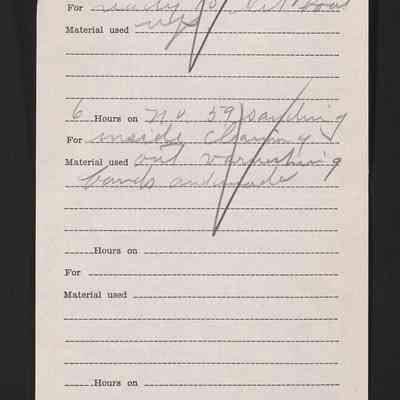 For ready
Material used ups
6 Hours on No 59 sanding
For inside cleaning
Material used out varnishing
bands and made
Hours on
For
Material used
Hours on